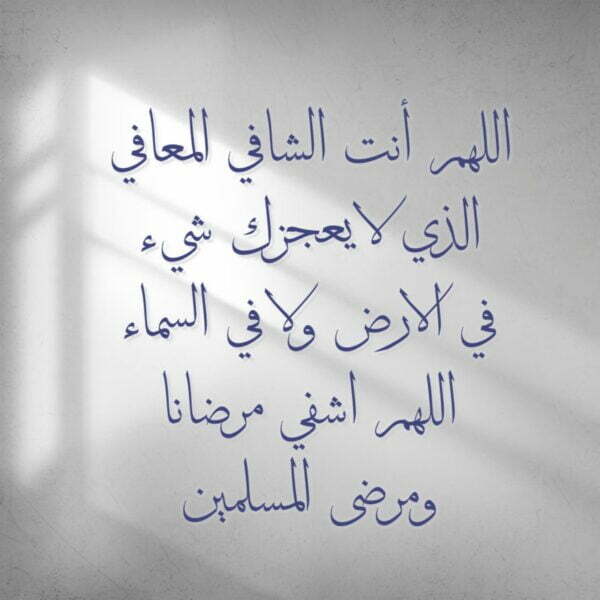 اللهم أنت الشافي المعافي
الذي لا يعجزك شيء
في الارض ولا في السماء
اللهم اشفي مرضانا
ومرضى المسلمين